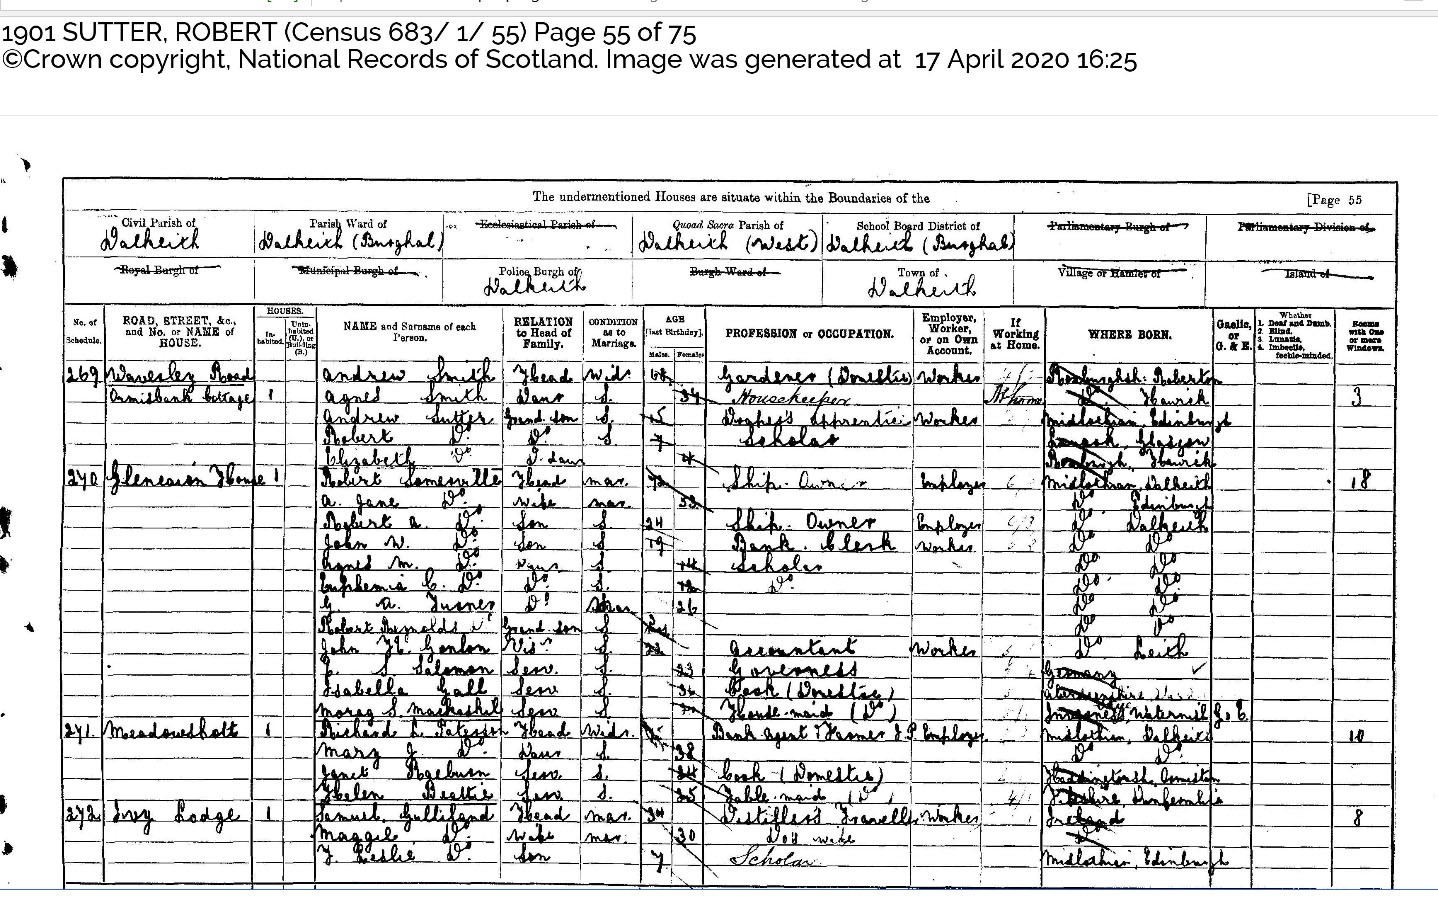 1901 SUTTER, ROBERT (Census 683/ 1/ 55) Page 55 of 75
©Crown copyright, National Records of Scotland. Image was generated at 17 April 2020 16:25
The undermentioned Houses are situate within the Boundaries of the [Page 55
Civil Parish of Parish Ward of Ecclesiastical Parish of Quoad Sacra Parish of School Board District of Parliamentary Burgh of Parliamentary Division of
Dalkeith Dalkeith (Burghal) Dalkeith (West) Dalkeith (Burghal)
Royal Burgh of Municipal Burgh of Police Burgh of Burgh Ward of Town of Village or Hamlet of Island of
Dalkeith Dalkeith
No. of Schedule. ROAD, STREET, &c., and No. or NAME of HOUSE. HOUSES. Inhabited. Uninhabited (U.), or Building (B.) NAME and Surname of each Person. RELATION to Head of Family. CONDITION as to Marriage. AGE [last Birthday]. Males. Females. PROFESSION or OCCUPATION. Employer, Worker, or on Own Account. If Working at Home. WHERE BORN. Gaelic, or G. & E. Whether 1. Deaf and Dumb. 2. Blind. 3. Lunatic. 4. Imbecile, feeble-minded. Rooms with One or more Windows.
269 Waverley Road Andrew Smith Head Wid. Gardener (Domestic) Worker Roxburghsh: Roberton
Ormisbank Cottage 1 Agnes Smith Daur S. 34 Housekeeper At home Do Hawick 3
Andrew Sutter Grand son S. 15 apprentice Worker Midlothian, Edinburgh
Robert Do Do S 7 Scholar Lanark, Glasgow
Elizabeth Do D. Daur 4 Roxburgh, Hawick
270 Glencairn House 1 Robert Somerville Head mar. 72 Ship-Owner Employer Midlothian, Dalkeith 18
A. Jane Do Wife mar. 53 Do Edinburgh
Robert A. Do Son S. 24 Ship-Owner Employer Do Dalkeith
John W. Do Son S. 19 Bank Clerk Worker Do Do
Agnes M. Do Daur S. 14 Scholar Do Do
Euphemia C. Do Do S. 12 Do Do Do
G. A. Turner Do Mar 26 Do Do
Robert Reynolds Do Grand son S. Do Do
John Visr S. 22 Accountant Worker Do Leith
S. Salomon Serv S. 23 Governess Germany
Isabella Gall Serv S. 36 Cook (Domestic)
Morag S. Mackaskil Serv S House-maid (Do) Inverness, Waternish G. E.
271 Meadowsholt 1 Richard L. Paterson Head Wid. Bank Agent Farmer J.P. Employer Midlothian, Dalkeith 10
Mary J. Do Daur S. 38 Do Do
Janet Raeburn Serv S. 24 Cook (Domestic) Haddingtonsh, Ormiston
Helen Beattie Serv S. 25 Table-maid (Do) Fifeshire, Dunfermline
272 Ivy Lodge 1 Samuel Gulliland Head mar. 34 Distillers Traveller Worker Ireland 8
Maggie Do Wife mar. 30 Do's wife Do
J. Leslie Do Son 7 Scholar Midlothian, Edinburgh